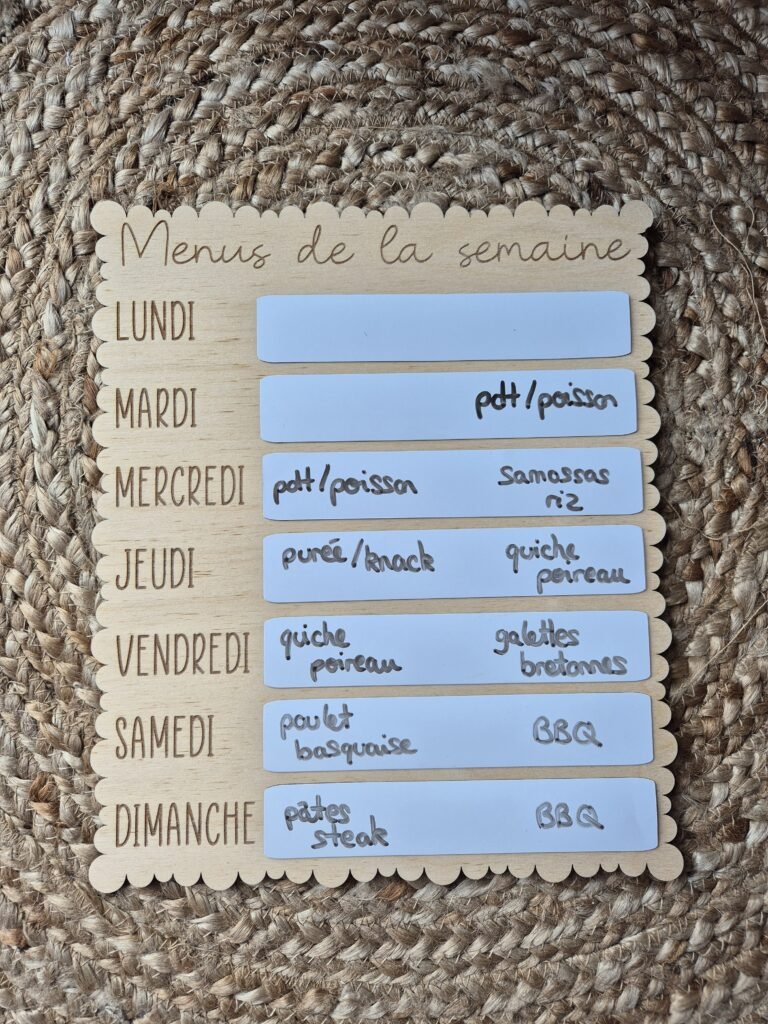 Menus de la semaine
LUNDI
MARDI pdt/poisson
MERCREDI pdt/poisson samossas
riz
JEUDI purée/knack quiche
poireau
VENDREDI quiche galettes
poireau bretonnes
SAMEDI poulet BBQ
basquaise
DIMANCHE pâtes BBQ
steak